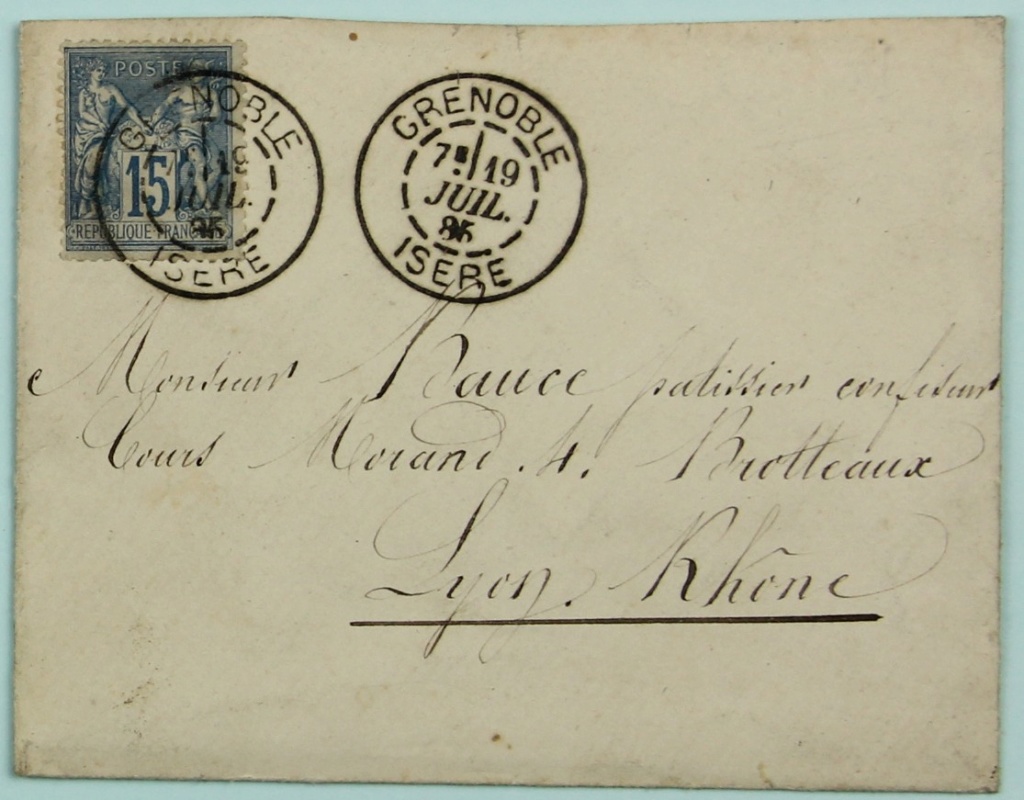 POSTE
15
REPUBLIQUE FRANÇAISE
GRENOBLE
19
JUIL.
85
ISERE
GRENOBLE
7E 19
JUIL.
85
ISERE
Monsieur Rauce patissier confiseur
Cours Morand. 4. Brotteaux
Lyon. Rhône